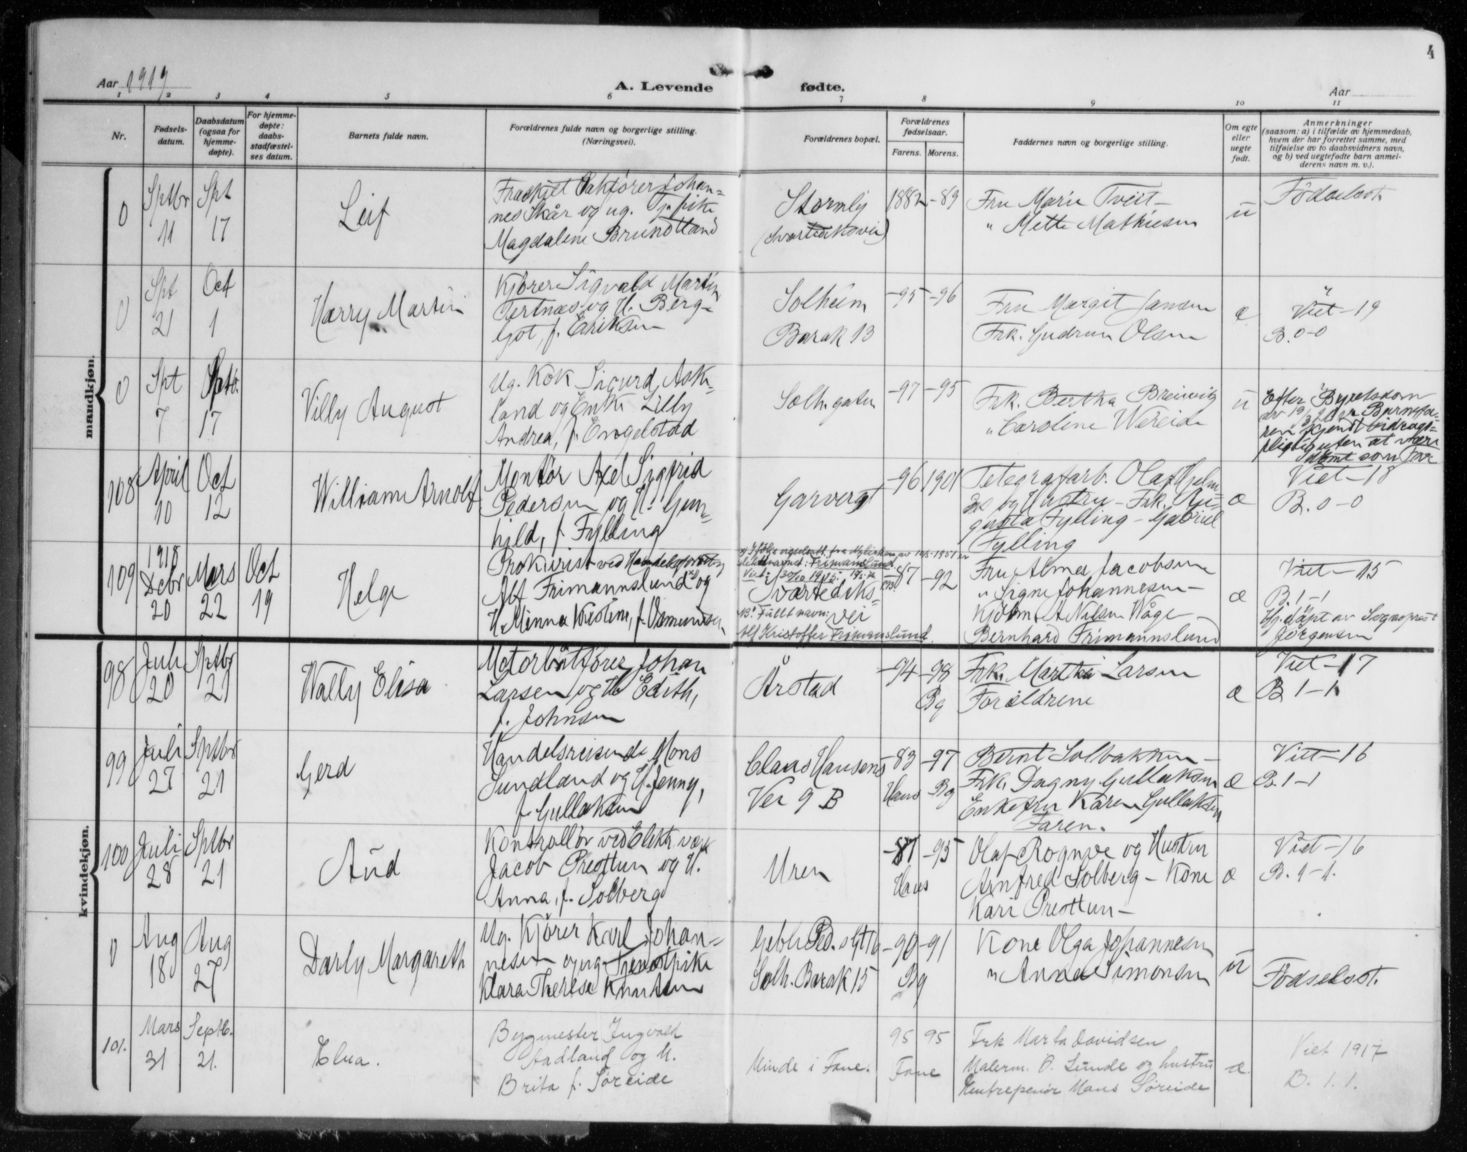 4
Aar 1919
A. Levende fødte.
Aar
1 2 3 4 5 6 7 8 9 10 11
Nr.
Fødsels-
datum.
Daabsdatum
(ogsaa for
hjemme-
døpte).
For hjemme-
døpte:
daabs-
stadfæstel-
ses datum.
Barnets fulde navn.
Forældrenes fulde navn og borgerlige stilling.
(Næringsvei).
Forældrenes bopæl.
Forældrenes
fødselsaar.
Farens.
Morens.
Faddernes navn og borgerlige stilling.
Om egte
eller
uegte
født.
Anmerkninger
(saasom: a) i tilfælde av hjemmedaab,
hvem der har forrettet samme, med
tilføielse av to daabsvidners navn,
og b) ved uegtefødte barn anmel-
derens navn m. v.).
mandkjøn.
0
Sptbr
11
Spt
17
Leif
Johan-
nes Skår og ug.
Magdalene Brundtland
Stormly
1882 -89
Fru Marie Tveit-
" Mette Mathiesen
ü
Fødselsat
0
Spt
21
Oct
1
Harry Martin
Kjører Sigvald Martin
Tertnæs og H. Berg-
got, f. Eriksen
Solheim
Barak 13
-95 -96
Fru Margit Jansen
Frk. Gudrun Olsen
æ
Viet -19
B. 0-0
0
Spt
7
17
Villy August
Ug. Kok Sigurd Ask-
land og Enke Lilly
Andrea, f. Engelstad
Solh. gaten
-97 -95
Frk. Bertha Breivig
" Caroline Wereide
ü
Efter Byretsdom
av 19/3 er Barnefa-
ren kjendt bidrags-
pligtig uten at være
dømt som Far
108
April
10
Oct
12
William Arnolf
Montør Axel Sigfrid
Pedersen og H. Gun-
hild, f. Fylling
Garvergt
-96 1901
Telegrafarb. Olaf Hjelm-
og Hustru - Frk. Au-
gusta Fylling - Gabriel
Fylling
æ
Viet -18
B. 0-0
109
1918
Debr
20
Mars
22
Oct
19
Helge
Prokurist ved
Alf Frimannslund og
H. Minna Kristine, f. Osmundsen
Svartediks-
vei
B: Fullt navn:
Alf Kristoffer Frimannslund.
-87 -92
Fru Alma Jacobsen
" Signe Johannesen-
Kjøbm. A. Nilsen Wåge-
Bernhard Frimannslund
æ
Viet -15
B. 1-1
Hj.døpt av Sogneprest
Jörgensen
kvindekjøn.
98
Juli
20
Sptbr
21
Wally Elisa
Motorbåtfører Johan
Larsen og H. Edith,
f. Johnsen
Årstad
-94 -98
Bg
Frk. Martha Larsen
Forældrene
æ
Viet -17
B. 1-1
99
Juli
27
Sptbr
21
Gerd
Handelsreisende Mons
Sundland og H. Jenny,
f. Gullaksen
Claus Hansens
Vei 9 B
-83 -97
Haus Bg
Bernt Solbakken-
Frk. Dagny Gullaksen
Enkefru Karen Gullaksen
Faren.
æ
Viet -16
B. 1-1
100
Juli
28
Sptbr
21
Aud
Kontrollør ved Elektr. værk
Jacob Prestun og H.
Anna, f. Solberg
Uren
-87 -95
Haus
Olaf Rognve og Hustru
Arnfred Solberg - Kone
Kari Prestun-
æ
Viet -16
B. 1-1.
0
Aug
18
Aug
27
Darly Margareth
Ug. Kjører Karl Johan-
nesen og ug. Tjenestpike
Klara Therese Knutsen
Solh. Barak 15
-90 -91
Bg
Kone Olga Johannesen
" Anna Simonsen
ü
Fødselsat.
101.
Mars
31
Septb.
21.
Elua.
Bygmester Ingvald
Aadland og H.
Brita f. Søreide
Minde i Fane.
95 95
Fane
Frk Marta Davidsen
Malerm. O. Lunde og hustru
Entreprenør Mons Søreide
æ
Viet 1917
B. 1.1.